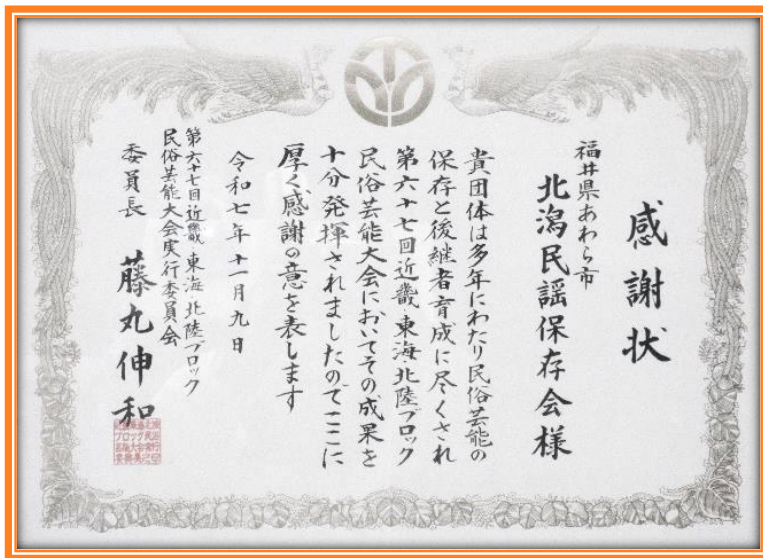 感謝状
福井県あわら市
北潟民謡保存会様
貴団体は多年にわたり民俗芸能の
保存と後継者育成に尽くされ
第六十七回近畿・東海・北陸ブロック
民俗芸能大会においてその成果を
十分発揮されましたのでここに
厚く感謝の意を表します
令和七年十一月九日
第六十七回近畿・東海・北陸ブロック
民俗芸能大会実行委員会
委員長　藤丸伸和